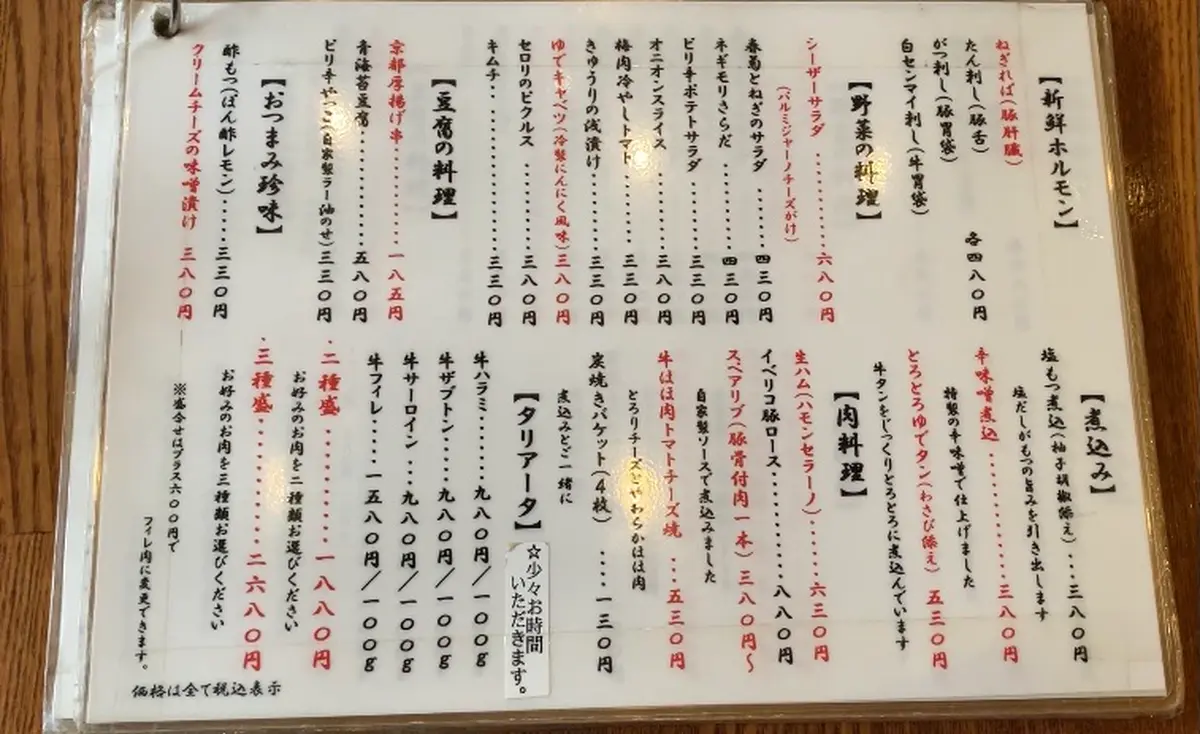 【新鮮ホルモン】
ねぎればー(豚肝臓)
たん刺し(豚舌)
がつ刺し(豚胃袋)
白センマイ刺し(牛胃袋)
各四八〇円
【野菜の料理】
シーザーサラダ ・・・・・・・・六八〇円
(パルミジャーノチーズがけ)
春菊とねぎのサラダ ・・・・・四三〇円
ネギモリさらだ ・・・・・・・・四三〇円
ピリ辛ポテトサラダ ・・・・・三三〇円
オニオンスライス ・・・・・・・三八〇円
梅肉冷やしトマト ・・・・・・・三三〇円
きゅうりの浅漬け・・・・・・・三三〇円
ゆでキャベツ(冷製にんにく風味)三八〇円
セロリのピクルス ・・・・・・・三八〇円
キムチ・・・・・・・・・・・・三三〇円
【豆腐の料理】
京都厚揚げ串・・・・・・・・・一八五円
青海苔豆腐・・・・・・・・・・五八〇円
ピリ辛やっこ(自家製ラー油のせ)三三〇円
【おつまみ珍味】
酢もつ(ぽん酢レモン)・・・・三三〇円
クリームチーズの味噌漬け 三八〇円
【煮込み】
塩もつ煮込(柚子胡椒添え)・・・三八〇円
塩だしがもつの旨みを引き出します
辛味噌煮込 ・・・・・・・・・・三八〇円
特製の辛味噌で仕上げました
とろとろゆでタン(わさび添え) 五三〇円
牛タンをじっくりとろとろに煮込んでいます
【肉料理】
生ハム(ハモンセラーノ)・・・・・六三〇円
イベリコ豚ロース・・・・・・・・八八〇円
スペアリブ(豚骨付肉一本) 三八〇円〜
自家製ソースで煮込みました
牛ほほ肉トマトチーズ焼 ・・・五三〇円
とろりチーズとやわらかほほ肉
炭焼きバケット(4枚) ・・・・一三〇円
煮込みとご一緒に
【タリアータ】
☆少々お時間
いただきます。
牛ハラミ・・・・・九八〇円/一〇〇g
牛ザブトン・・・・九八〇円/一〇〇g
牛サーロイン ・・九八〇円/一〇〇g
牛フィレ・・・・一五八〇円/一〇〇g
・二種盛 ・・・・・・・・・一八八〇円
お好みのお肉を二種類お選びください
・三種盛・・・・・・・・・・二六八〇円
お好みのお肉を三種類お選びください
※盛合せはプラス六〇〇円で
フィレ肉に変更できます。
価格は全て税込表示